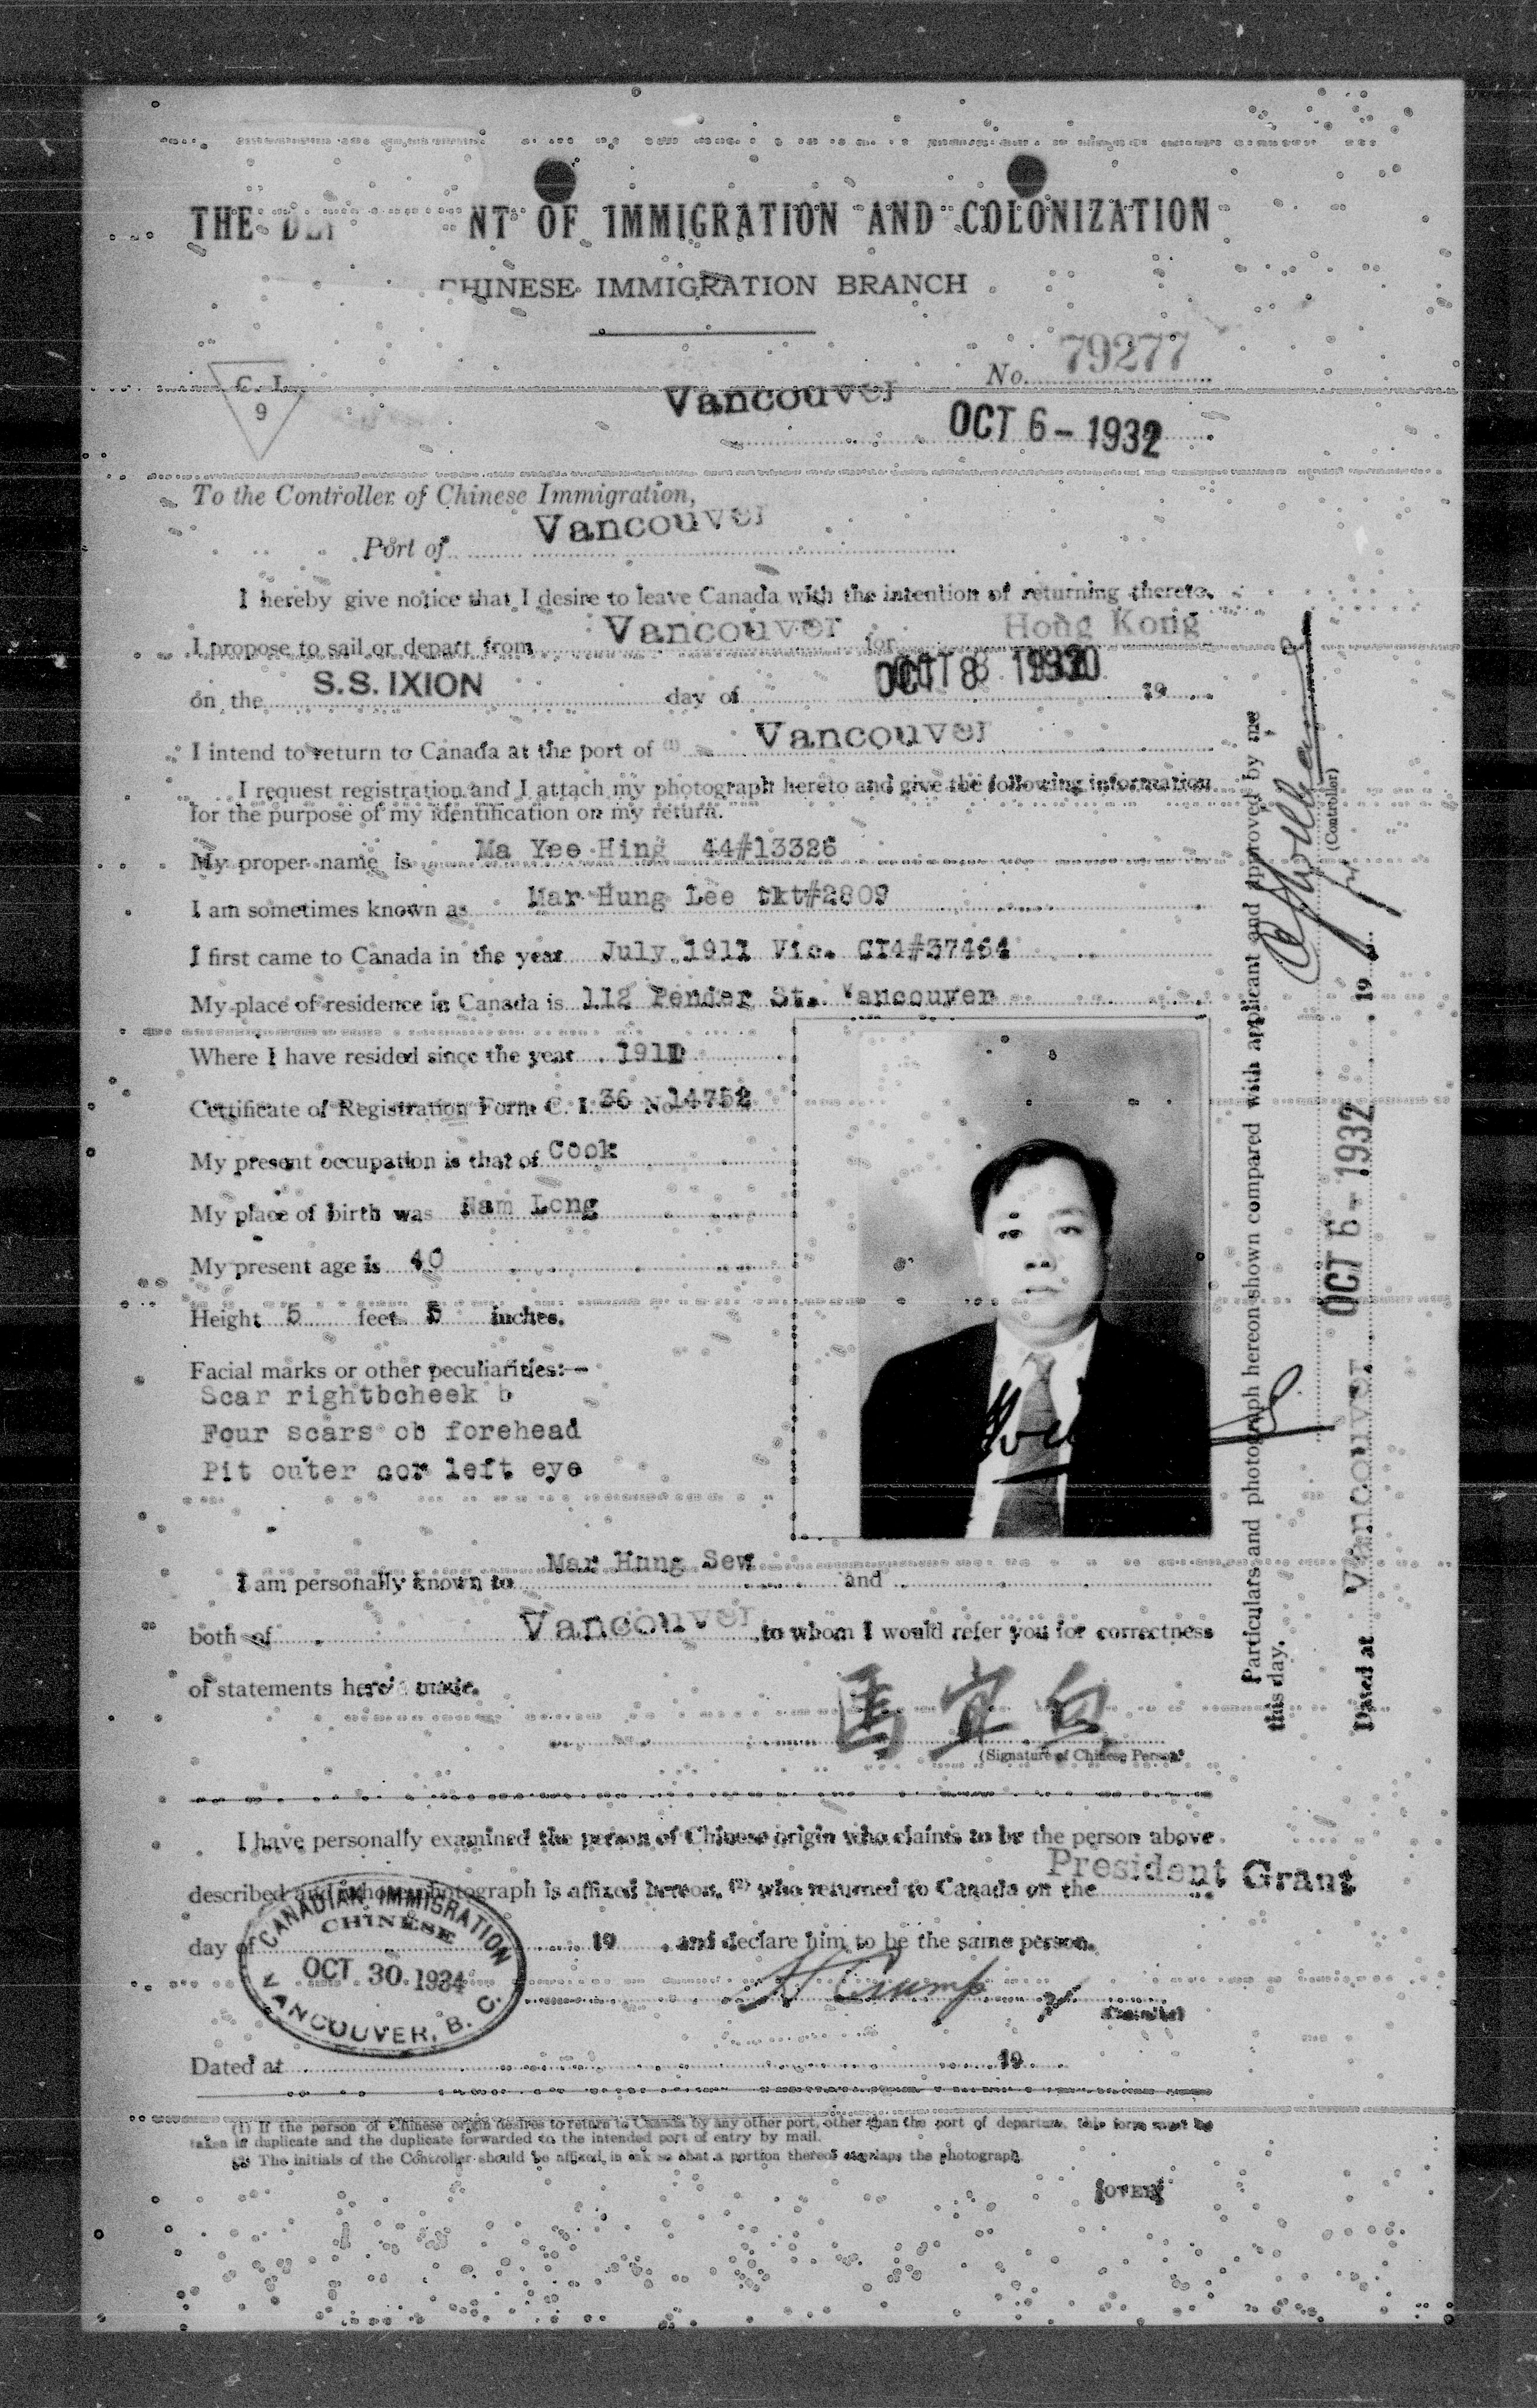 THE DEP NT OF IMMIGRATION AND COLONIZATION
CHINESE IMMIGRATION BRANCH
C. I.
9
No. 79277
Vancouver
OCT 6 - 1932
To the Controller of Chinese Immigration,
Port of Vancouver
I hereby give notice that I desire to leave Canada with the intention of returning thereto.
I propose to sail or depart from Vancouver for Hong Kong
on the S.S. IXION day of OCT 8 19
I intend to return to Canada at the port of (1) Vancouver
I request registration and I attach my photograph hereto and give the following information
for the purpose of my identification on my return.
My proper name is Ma Yee Hing 44#13326
I am sometimes known as Mar Hung Lee tkt#2809
I first came to Canada in the year July 1911 Vic. CI4#37464
My place of residence in Canada is 112 Pender St. Vancouver
Where I have resided since the year 1911
Certificate of Registration Form C. I. 36 No 14752
My present occupation is that of Cook
My place of birth was Nam Long
My present age is 40
Height 5 feet 5 inches.
Facial marks or other peculiarities:—
Scar rightbcheek b
Four scars ob forehead
Pit outer cor left eye
I am personally known to Mar Hung Sew and
both of Vancouver to whom I would refer you for correctness
of statements herein made.
馬宜
(Signature of Chinese Person)
I have personally examined the person of Chinese origin who claims to be the person above
described and whose photograph is affixed hereon, (2) who returned to Canada on the President Grant
day of 19 , and declare him to be the same person.
CANADIAN IMMIGRATION
CHINESE
OCT 30 1934
VANCOUVER, B. C.
H Crump
Controller
Dated at 19
(1) If the person of Chinese origin desires to return to Canada by any other port, other than the port of departure, this form must be
taken in duplicate and the duplicate forwarded to the intended port of entry by mail.
(2) The initials of the Controller should be affixed in ink so that a portion thereof overlaps the photograph.
[OVER]
Particulars and photograph hereon shown compared with applicant and approved by me
this day.
Dated at Vancouver OCT 6 - 1932 19
(Controller)